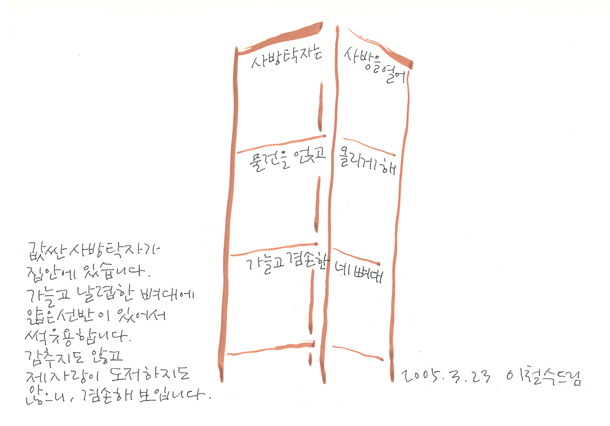 사방탁자는 사방을 열어
물건을 얹고 올리게 해
가늘고 겸손한 네 뼈대
값싼 사방탁자가
집안에 있습니다.
가늘고 날렵한 뼈대에
얇은 선반이 있어서
썩 유용합니다.
감추지도 않고
제 자랑이 도저하지도
않으니, 겸손해 보입니다.
2005.3.23 이철수드림